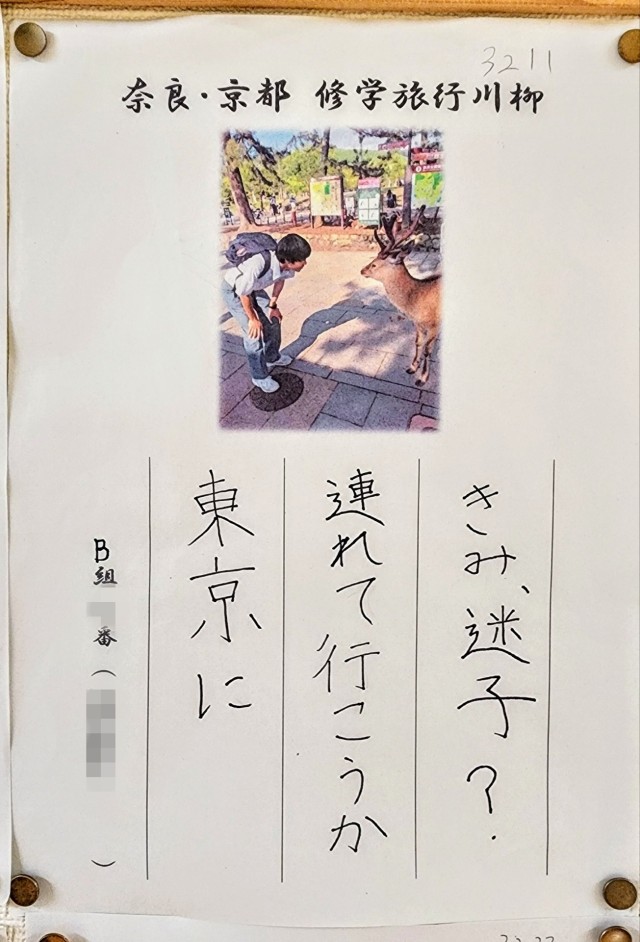 3211
奈良・京都 修学旅行川柳
きみ、迷子?
連れて行こうか
東京に
B組 番( )